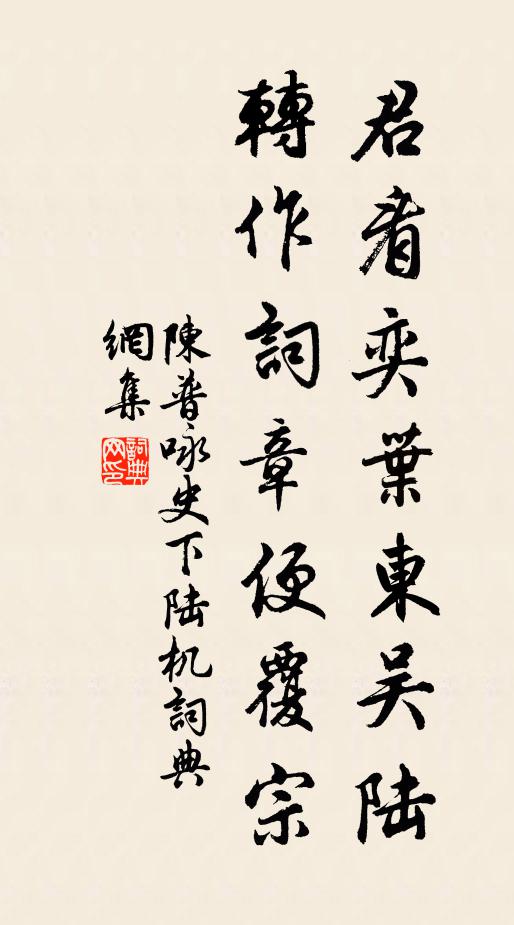 君看奕葉東吴陆
轉作詞章便覆宗
陳普咏史下陆机詞典
網集
詞典網印